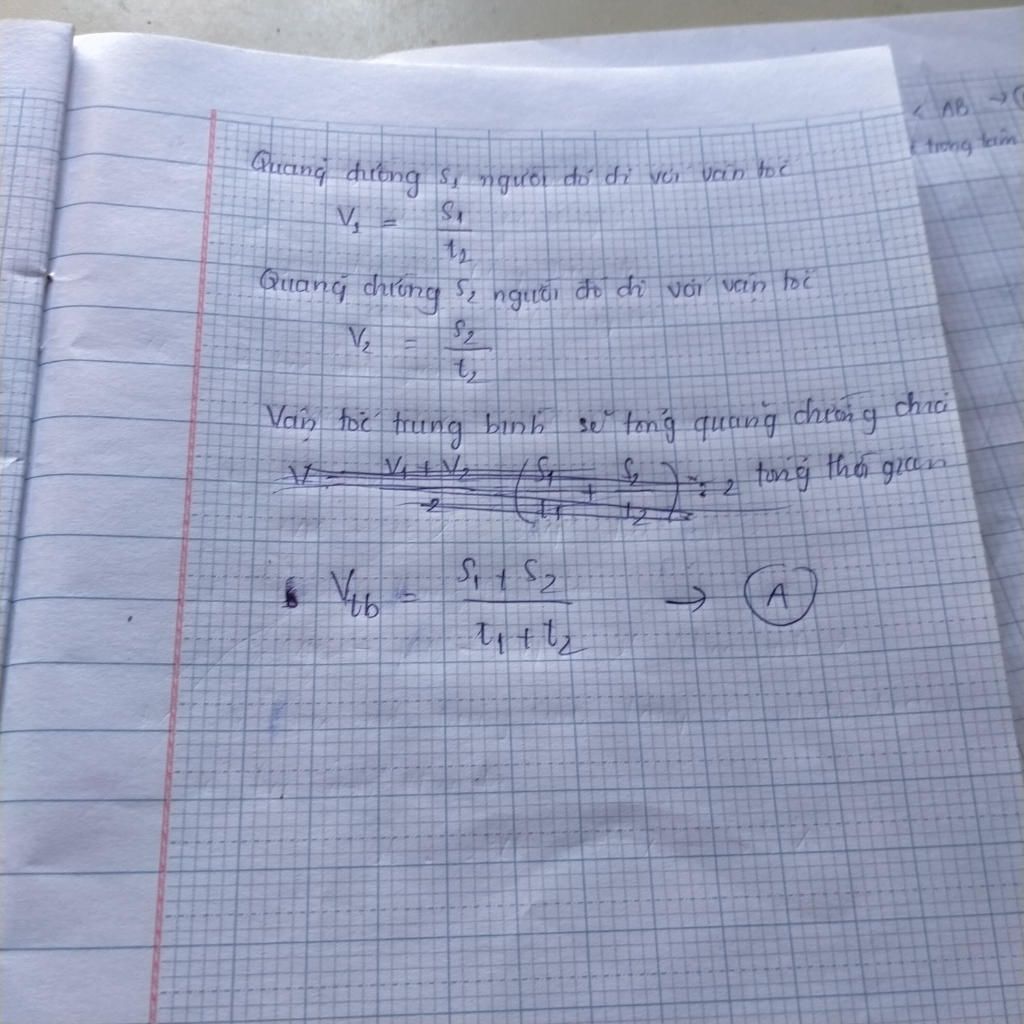 Quãng đường S₁ người đó đi với vận tốc
V₁ = S₁ / t₂
Quãng đường S₂ người đó đi với vận tốc
V₂ = S₂ / t₂
Vận tốc trung bình sẽ tổng quãng đường chia
V = V₁ + V₂ / 2 (S₁ / t₁ + S₂ / t₂) : 2 tổng thời gian
Vtb = S₁ + S₂ / t₁ + t₂ → A
< AB →
trong tam